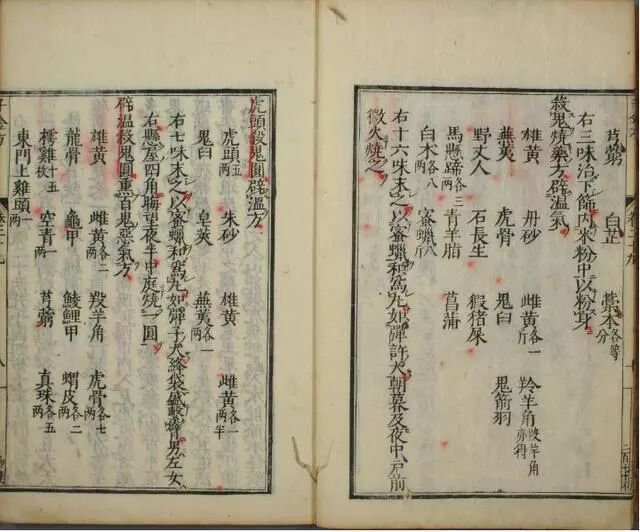 芎藭 白芷 藁本各等分
右三味治下篩內米粉中以粉身
殺鬼燒藥方辟溫氣
雄黃 丹砂 雌黃各一斤 羚羊角羖羊角亦得
蕪荑 虎骨 鬼臼 鬼箭羽
野丈人 石長生 猳猪屎
馬懸蹄各三兩 青羊脂 菖蒲
白朮各八兩 蜜蠟八斤
右十六味末之以蜜蠟和為丸如彈許大朝暮及夜中戶前
微火燒之
虎頭殺鬼圓辟溫方
虎頭五兩 朱砂 雄黃 雌黃各一兩半
鬼臼 皁莢 蕪荑各一兩
右七味末之以蜜蠟和為丸如彈子大絳袋盛繫臂男左女
右懸屋四角晦望夜半中庭燒一圓
辟溫殺鬼圓熏百鬼惡氣方
雄黃 雌黃各二兩 羖羊角 虎骨各七兩
龍骨 龜甲 鯪鯉甲 蝟皮各三兩
樗雞十五枚 空青一兩 芎藭 真珠各五兩
東門上雞頭一兩